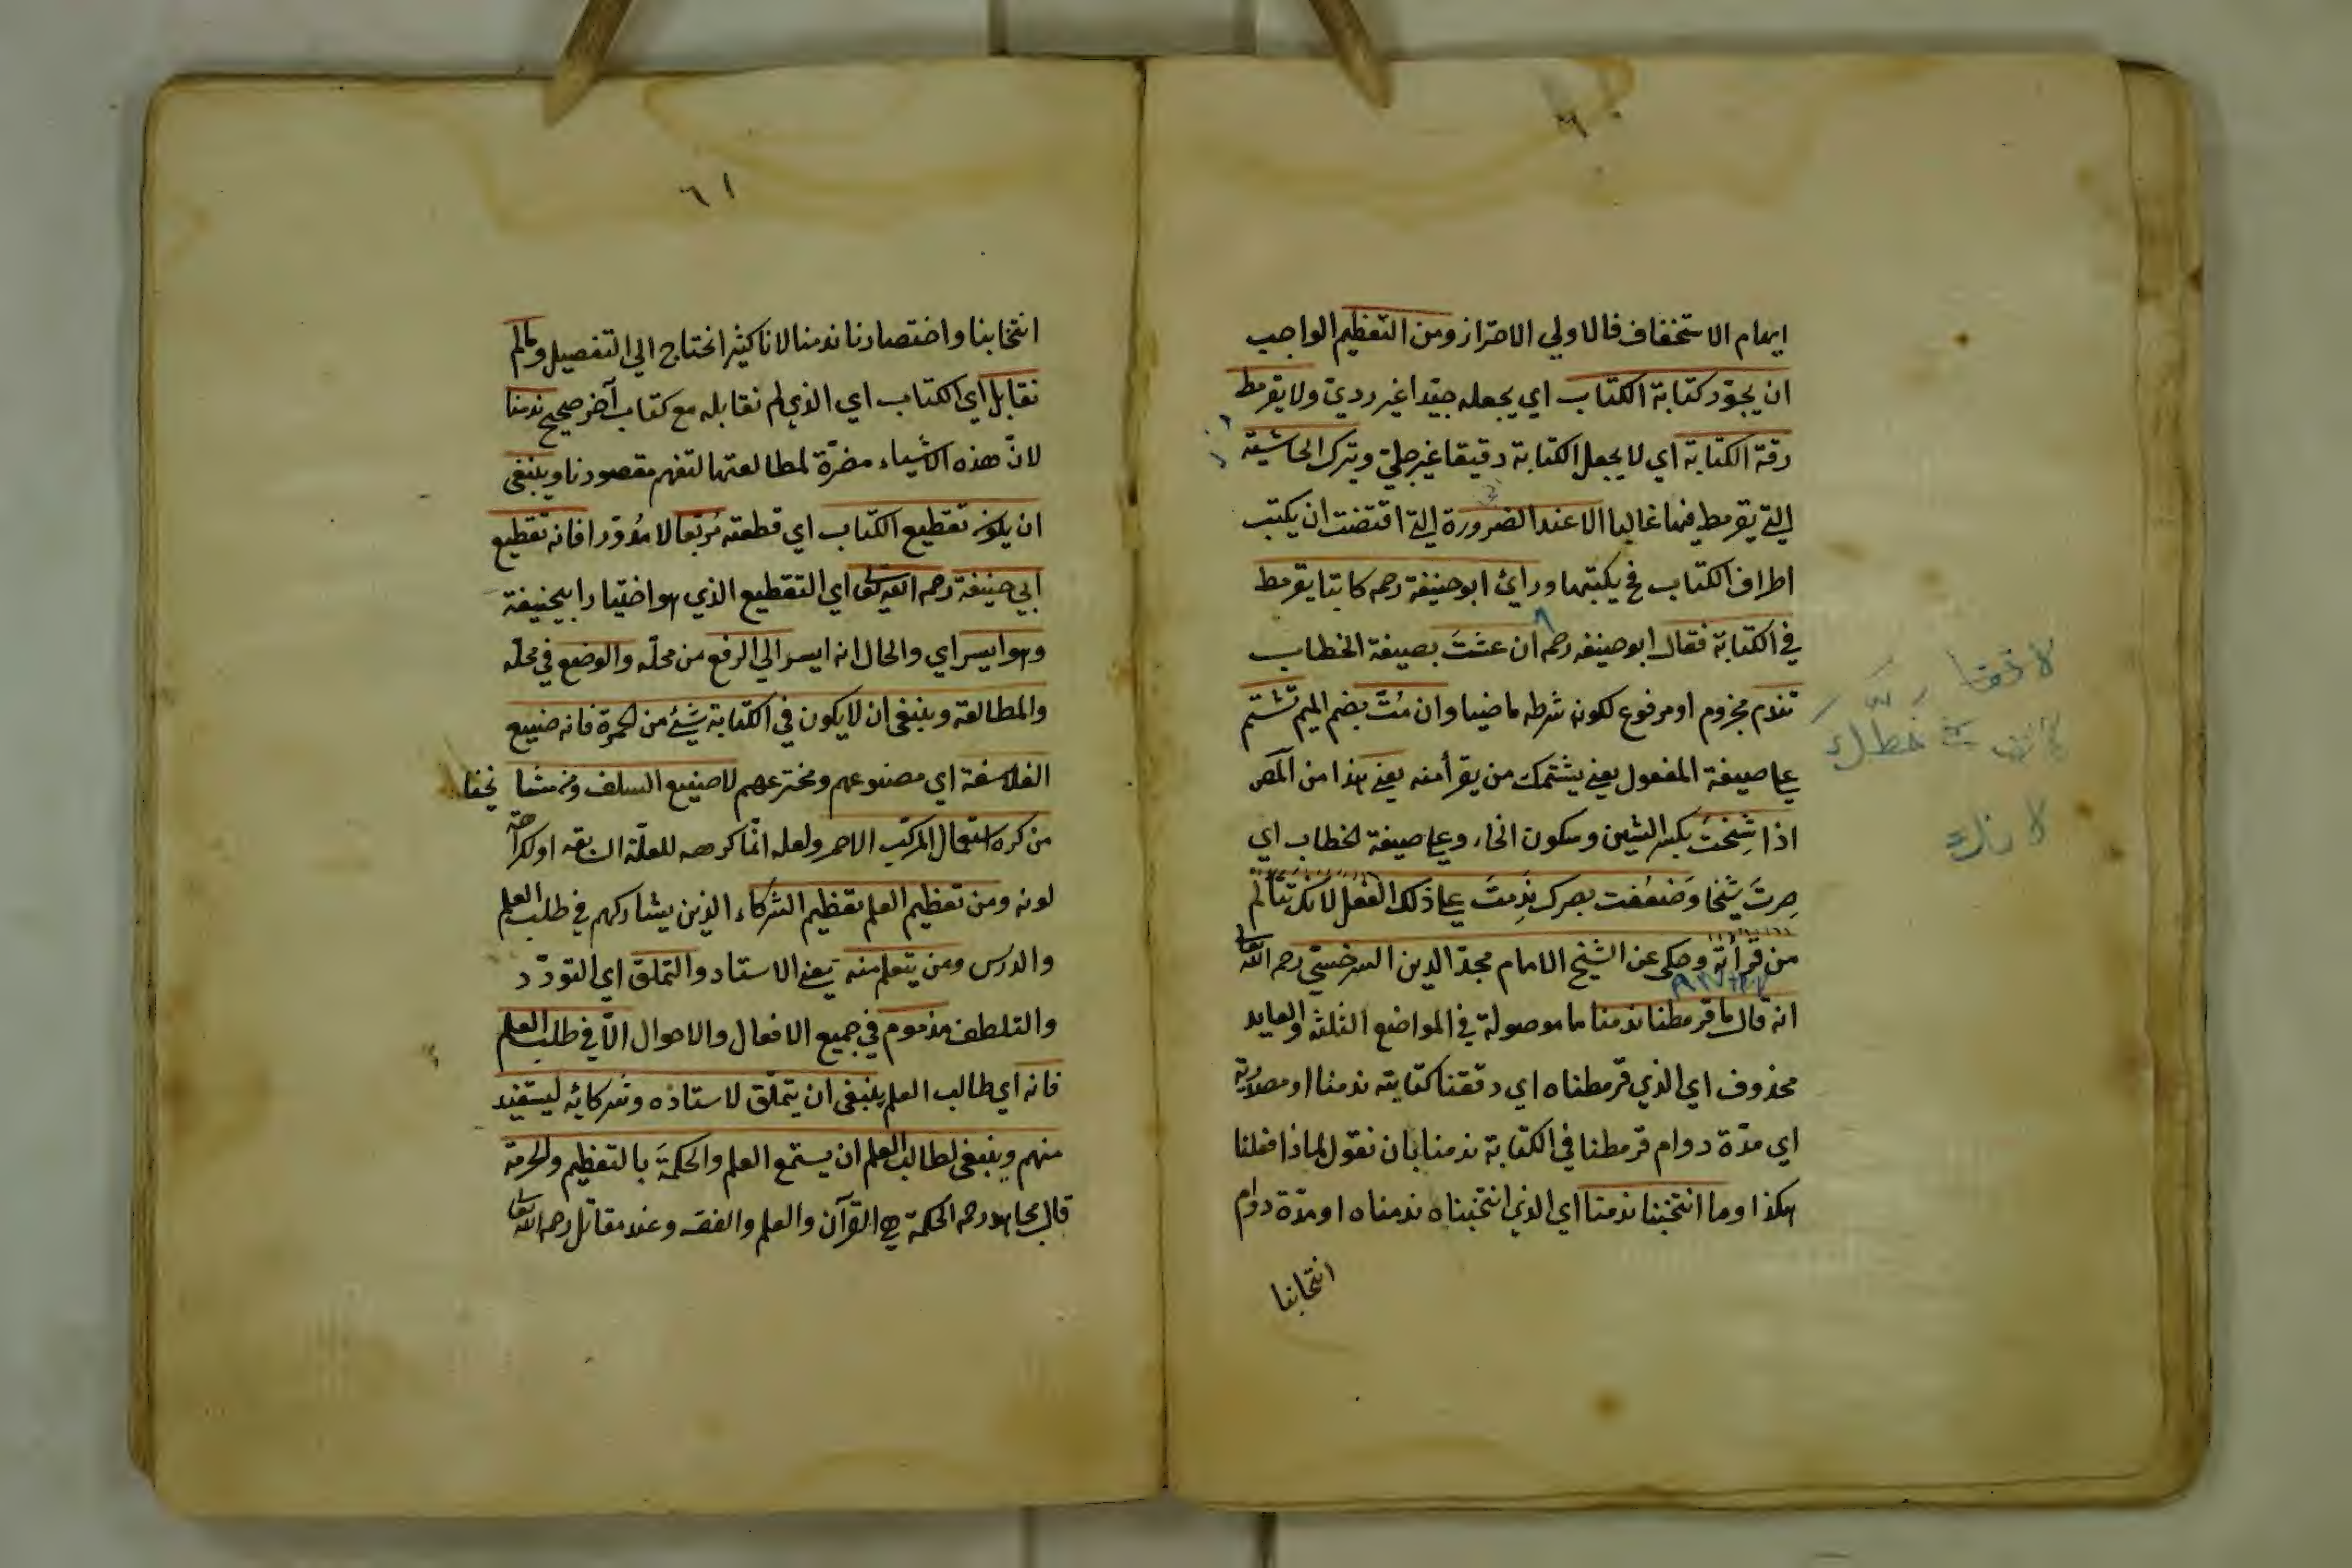 ايهام الاستخفاف فالاولى الاحتراز ومن التعظيم الواجب
ان يجوّد كتابة الكتاب اي يجعله جيّدا غير رديّ ولا يقرمط
رقة الكتابة اي لا يجعل الكتابة دقيقا غير جليّ ويترك الحاشية
التي يقرمط فيها غالبا الا عند الضرورة التي اقتضت ان يكتب
اطراف الكتاب فح يكتبها ورائ ابو حنيفة رحه كاتبا يقرمط
في الكتابة فقال ابو حنيفه رحه ان عشتَ بصيغة الخطاب
تندم مجزوم او مرفوع لكونه شرطه ماضيا وان مُتّ بضم الميم تشتم
على صيغة المفعول يعني يشتمك من يقرأ منه يعني هذا من المص
اذا شِختَ بكسر الشين وسكون الخاء وعلى صيغة الخطاب اي
صرتَ شيخا وضعُفت بصرك ندِمتَ على ذلك الفعل لانك تتألم
من قرأته وحكي عن الشيخ الامام مجدّ الدين السرخسيّ رحمه الله تعالى
انه قال ما قرمطنا ندمنا ما موصولة في المواضع الثلثه والعايد
محذوف اي الذي قرمطناه اي دققنا كتابته ندمنا او مصدرية
اي مدّة دوام قرمطنا في الكتابة ندمنا بان نقول لماذا فعلنا
هكذا وما انتخبنا ندمنا اي الذي انتخبناه ندمناه او مدّة دوام
انتخابنا
لا
خطك
لا
٦١
انتخابنا واختصارنا ندمنا لانا كثيرا نحتاج الى التفصيل وما لم
نقابل اي الكتاب اي الذي لم نقابله مع كتاب آخر صحيح ندمنا
لانّ هذه الاشياء مضرّة لمطالعتها لتفهم مقصودنا وينبغى
ان يكون تقطيع الكتاب اي قطعته مُربّعا لا مُدوّرا فانه تقطيع
ابي حنيفة رحمه الله تعالى اي التقطيع الذي هو اختيار ابيحنيفة
وهو ايسر اي والحال انه ايسر الى الرفع من محلّه والوضع في محلّه
والمطالعة وينبغى ان لا يكون في الكتابة شيئ من الحمرة فانه صنيع
الفلاسفة اي مصنوعهم ومخترعهم لا صنيع السلف ومن مشايخنا
من كره استعمال المركّب الاحمر ولعله انّما كرهه للعلّة السابقه او لكراهة
لونه ومن تعظيم العلم تعظيم الشركاء الذين يشاركهم في طلب العلم
والدرس ومن يتعلم منه يعني الاستاد والتملق اي التودّد
والتلطف مذموم في جميع الافعال والاحوال الّا في طلب العلم
فانه اي طالب العلم ينبغى ان يتملّق لاستاذه وشركائه ليستفيد
منهم وينبغى لطالب العلم ان يستمع العلم والحكمةَ بالتعظيم والحرمة
قال مجاهد رحه الحكمة هي القرآن والعلم والفقه وعند مقاتل رحمه الله تعالى